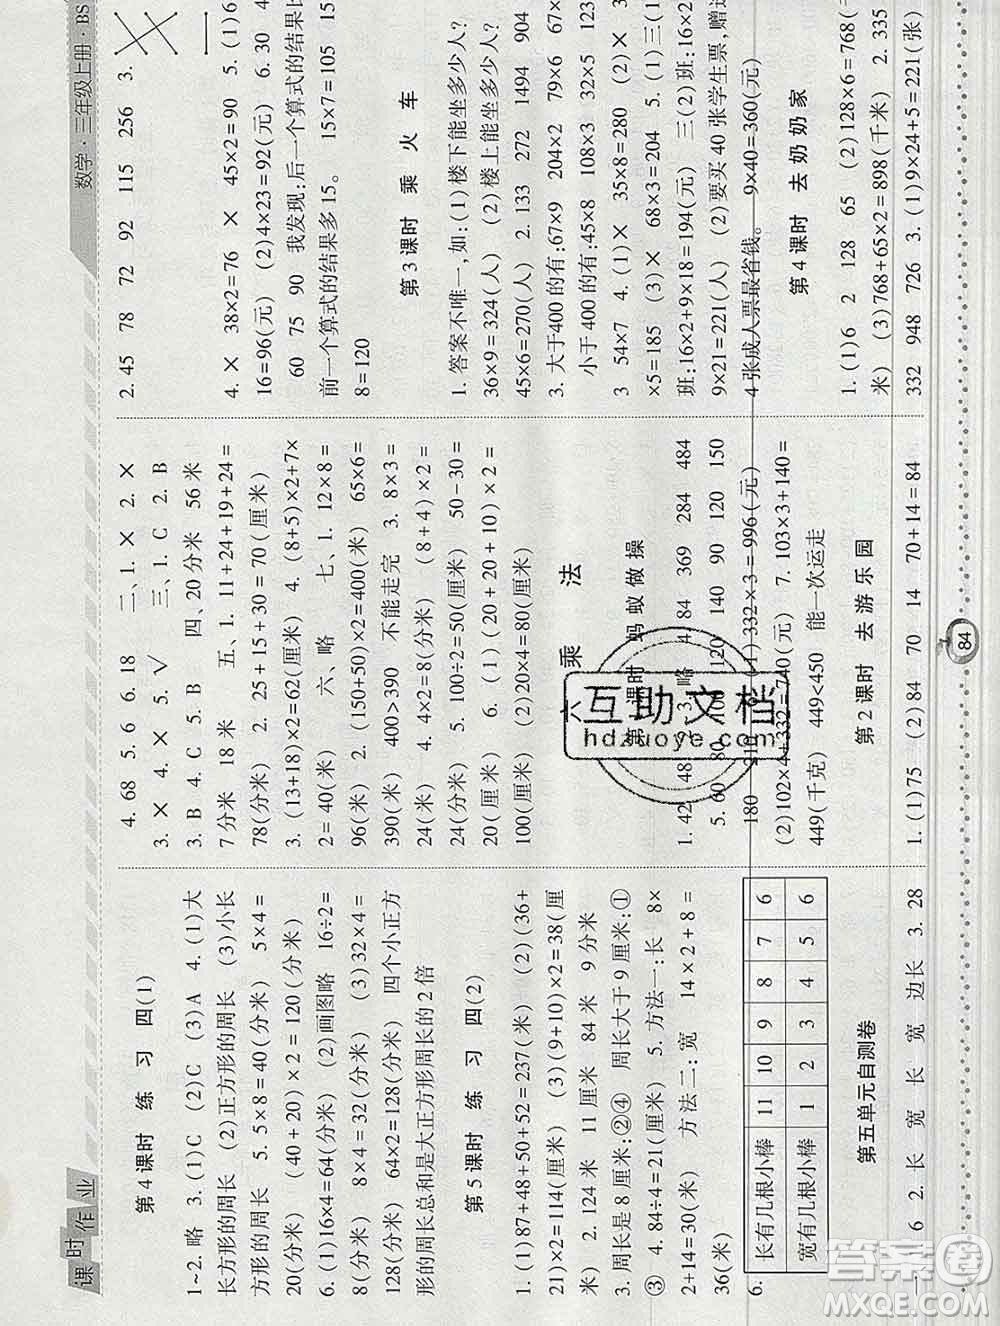 课时作业
数学·三年级上册·BS
第4课时 练习四(1)
1~2. 略 3. (1)C (2)C (3)A 4. (1)大
长方形的周长 (2)正方形的周长 (3)小长
方形的周长 5. 5×8=40(分米) 5×4=
20(分米) (40+20)×2=120(分米)
6. (1)16×4=64(分米) (2)画图略 16÷2=
8(分米) 8×4=32(分米) (3)32×4=
128(分米) 64×2=128(分米) 四个小正方
形的周长总和是大正方形周长的2倍
第5课时 练习四(2)
1. (1)87+48+50+52=237(米) (2)(36+
21)×2=114(厘米) (3)(9+10)×2=38(厘
米) 2. 124米 11厘米 84米 9分米
3. 周长是8厘米:②④ 周长大于9厘米:①
③ 4. 84÷4=21(厘米) 5. 方法一:长 8×
2+14=30(米) 方法二:宽 14×2+8=
36(米)
6.
长有几根小棒 11 10 9 8 7 6
宽有几根小棒 1 2 3 4 5 6
第五单元自测卷
一、1. 6 2. 长 宽 长 宽 边长 3. 28
4. 68 5. 6 6. 18 二、1. × 2. ×
3. × 4. × 5. √ 三、1. C 2. B
3. B 4. C 5. B 四、20分米 56米
7分米 18米 五、1. 11+24+19+24=
78(分米) 2. 25+15+30=70(厘米)
3. (13+18)×2=62(厘米) 4. (8+5)×2+7×
2=40(米) 六、略 七、1. 12×8=
96(米) 2. (150+50)×2=400(厘米) 65×6=
390(厘米) 400>390 不能走完 3. 8×3=
24(米) 4. 4×2=8(分米) (8+4)×2=
24(分米) 5. 100÷2=50(厘米) 50-30=
20(厘米) 6. (1)(20+10+10)×2=
100(厘米) (2)20×4=80(厘米)
六 乘法
第1课时 蚂蚁做操
1. 42 48 3. 略 4. 84 369 284 484
5. 60 80 100 120 140 90 120 150
180 210 6. (1)332×3=996(元)
(2)102×4+332=740(元) 7. 103×3+140=
449(千克) 449<450 能一次运走
第2课时 去游乐园
1. (1)75 (2)84 70 14 70+14=84
2. 45 78 72 92 115 256 3.
4. × 38×2=76 × 45×2=90 5. (1)6×
16=96(元) (2)4×23=92(元) 6. 30 45
60 75 90 我发现:后一个算式的结果比
前一个算式的结果多15。 15×7=105 15×
8=120
第3课时 乘火车
1. 答案不唯一,如:(1)楼下能坐多少人?
36×9=324(人) (2)楼上能坐多少人?
45×6=270(人) 2. 133 272 1494 904
3. 大于400的有:67×9 204×2 79×6 67×
小于400的有:45×8 108×3 32×5 123×
3 54×7 4. (1)× 35×8=280 (2)×
×5=185 (3)× 68×3=204 5. (1)三(1)
班:16×2+9×18=194(元) 三(2)班:16×2+
9×21=221(人) (2)要买40张学生票,赠送
4张成人票最省钱。 9×40=360(元)
第4课时 去奶奶家
1. (1)6 2 128 65 (2)128×6=768(千
米) (3)768+65×2=898(千米) 2. 335
332 948 726 3. (1)9×24+5=221(张)
84
互助文档
hdzuoye.com
答案圈
MXQE.COM